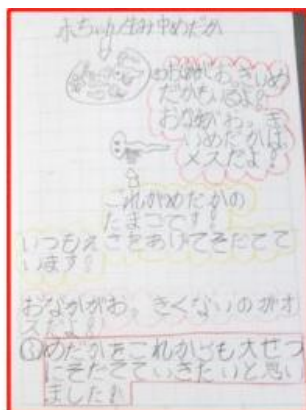 赤ちゃん生み中めだか
おなかがお、きいめ
だかもいるよ!
おなかがお、き
いめだかは、
メスだよ!
これがめだかの
たまごです!
いつもえさをあげてそだてて
います!
おなかがお、きくないのがオ
スだよ!
①めだかをこれからも大せつ
にそだてていきたいと思い
ました!